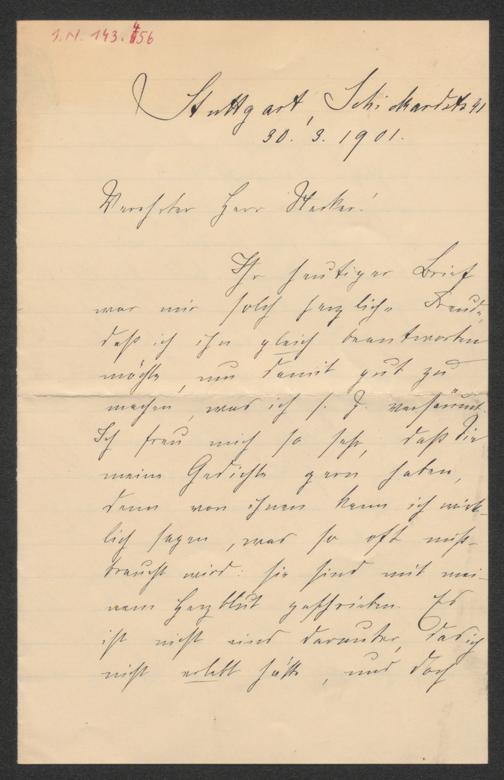 I.N. 143.456
Stuttgart, Schickardstr 41
30. 3. 1901.
Verehrter Herr Stecker!
Ihr heutiger Brief
war mir solch herzliche Freude,
daß ich ihn gleich beantworten
möchte, um damit gut zu
machen, was ich s. Z. versäumt.
Ich freu mich so sehr, daß Sie
meine Gedichte gern haben,
denn von ihnen kann ich wirk-
lich sagen, was so oft miß-
braucht wird: sie sind mit mei-
nem Herzblut geschrieben. Es
ist nicht eins darunter, das ich
nicht erlebt hätte, und doch